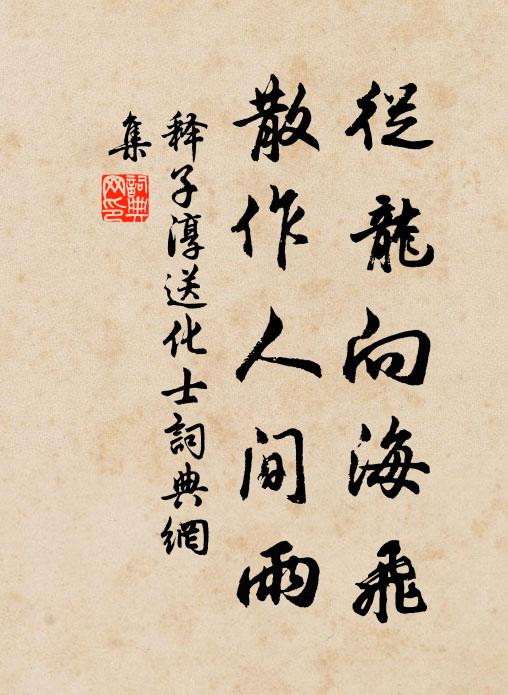 從龍向海飛
散作人间雨
释子淳送化士詞典網
集
詞典網印